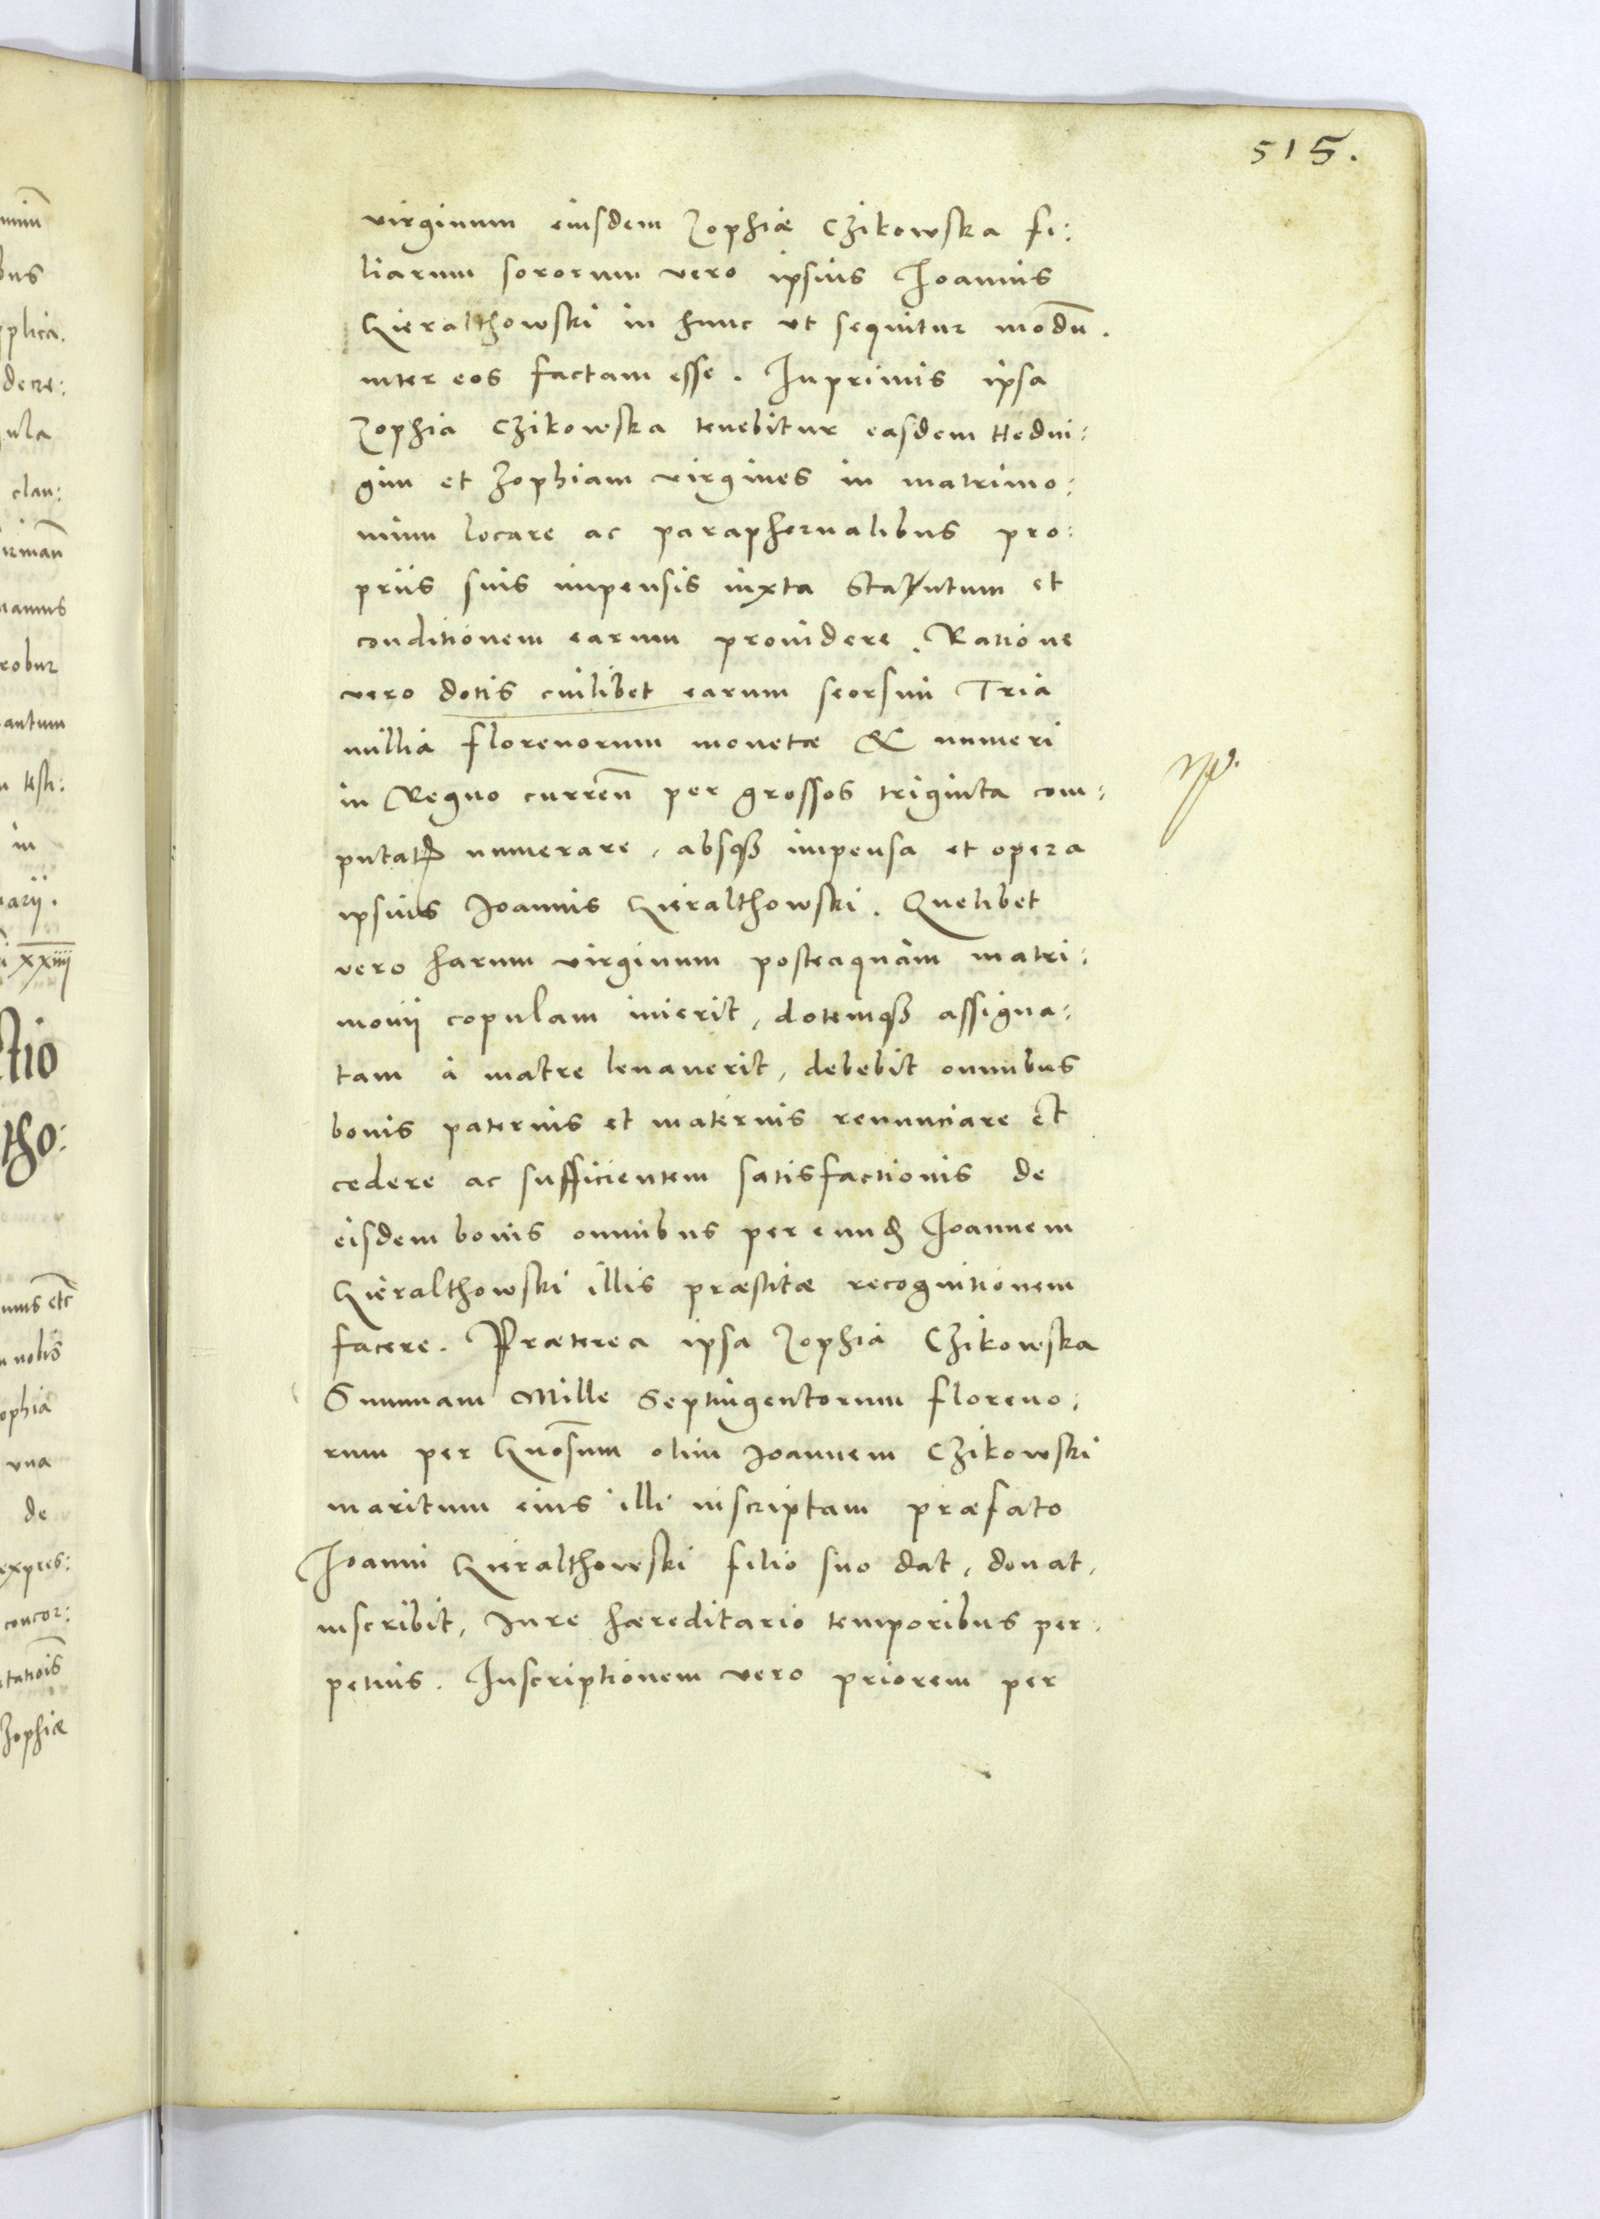 515.
virginum eiusdem Zophiæ Czikowska fi:
liarum sororum vero ipsius Joannis
Gieralthowski in hunc ut sequitur modũ.
inter eos factam esse. Inprimis ipsa
Zophia Czikowska tenebitur easdem Hedvi:
gim et Zophiam virgines in matrimo:
nium locare ac paraphernalibus pro:
priis suis impensis iuxta Statutum et
conditionem earum providere. Ratione
vero dotis cuilibet earum seorsim Tria
millia florenorum monetæ & numeri
in Regno curreñ per grossos triginta com:
putat numerare, absqꝫ impensa et opera
ipsius Joannis Gieralthowski. Quelibet
vero harum virginum posteaquam matri:
monij copulam inierit, dotemqꝫ assigna:
tam à matre levaverit, debebit omnibus
bonis paternis et maternis renunciare et
cedere ac sufficientem satisfactionis de
eisdem bonis omnibus per eund Joannem
Gieralthowski illis præstitæ recognitionem
facere. Præterea ipsa Zophia Czikowska
Summam Mille Septingentorum floreno:
rum per Gnõsum olim Joannem Czikowski
maritum eius illi inscriptam præfato
Joanni Gieralthowski filio suo dat, donat,
inscribit, Jure hæreditario temporibus per:
petuis. Inscriptionem vero priorem per
plica.
dere:
ula
clau:
robur
antum
in
arij.
xxiiij
tio
tho:
nobis
ophia
una
de
expres:
concor:
Zophiæ